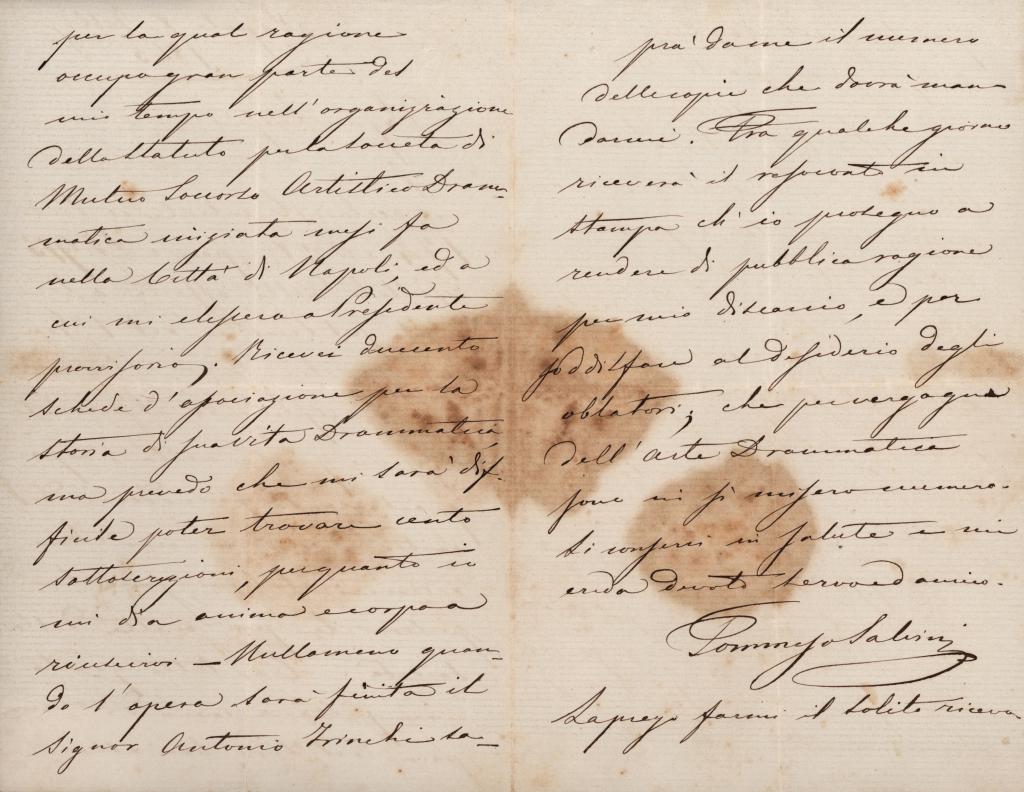 per la qual ragione
occupo gran parte del
mio tempo nell'organizzazione
dello Statuto per la Società di
Mutuo Soccorso Artistico Dram-
matica iniziata mesi fa
nella Città di Napoli, ed a
cui mi elessero a Presidente
provisorio. Ricevei duecento
schede d'associazione per la
storia di sua vita Drammatica
ma prevedo che mi sarà dif-
ficile poter trovare cento
sottoscrizioni, per quanto io
mi dia anima e corpo a
riuscirvi — Nullameno quan-
do l'opera sarà finita il
Signor Antonio Trinchi sa-
prà darne il numero
delle copie che dovrà man-
darmi. Fra qualche giorno
riceverà il resoconto in
stampa ch'io proseguo a
rendere di pubblica ragione
per mio discarico, e per
soddisfare al desiderio degli
oblatori; che per vergogna
dell'Arte Drammatica
sono in sì misero numero.
Si conservi in salute e mi
creda devoto servo ed amico.
Tommaso Salvini
La prego farmi il solito riceva